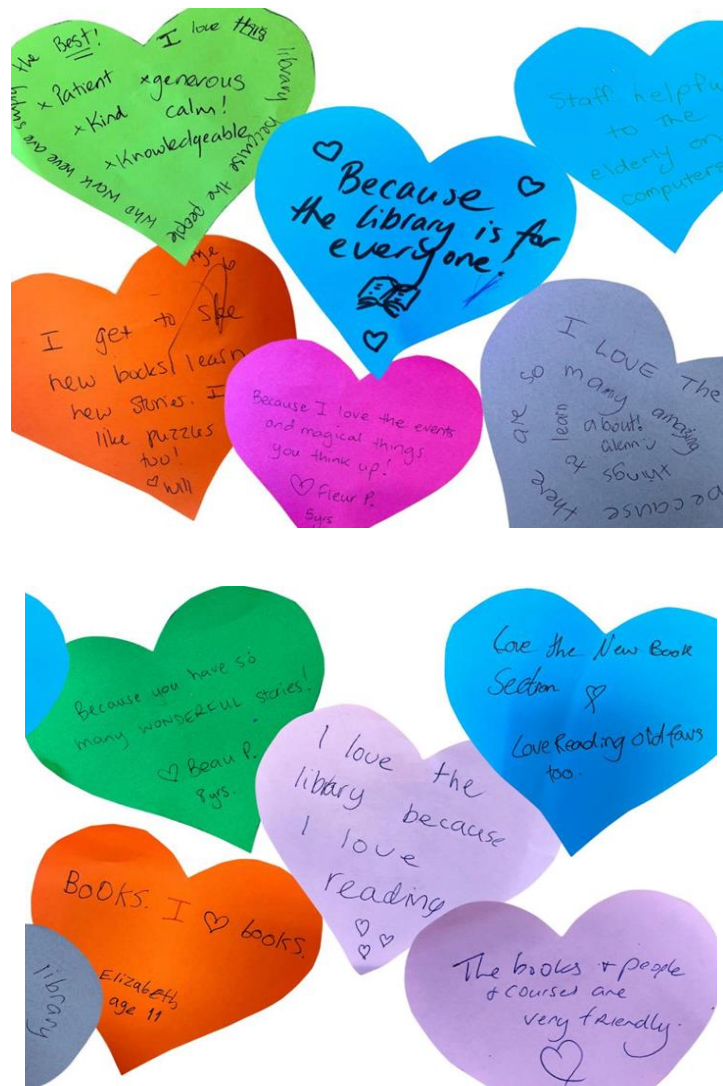 I love this library because the people who work here are simply the Best!
x Patient
x Kind
x generous
calm!
x Knowledgeable
Because
the library is for
everyone!
Staff helpful
to the
elderly on
computers
age 6
I get to see
new books/learn
new stories. I
like puzzles
too!
Will
Because I love the events
and magical things
you think up!
Fleur P.
5yrs
I LOVE The
because there are so many amazing
things to learn
about!
Because you have so
many WONDERFUL stories!
Beau P.
8yrs.
Love the New Book
Section
Love Reading old favs
too.
I love the
library because
I love
reading
BOOKS. I books.
Elizabeth
age 11
library
The books + people
+ courses are
very friendly.